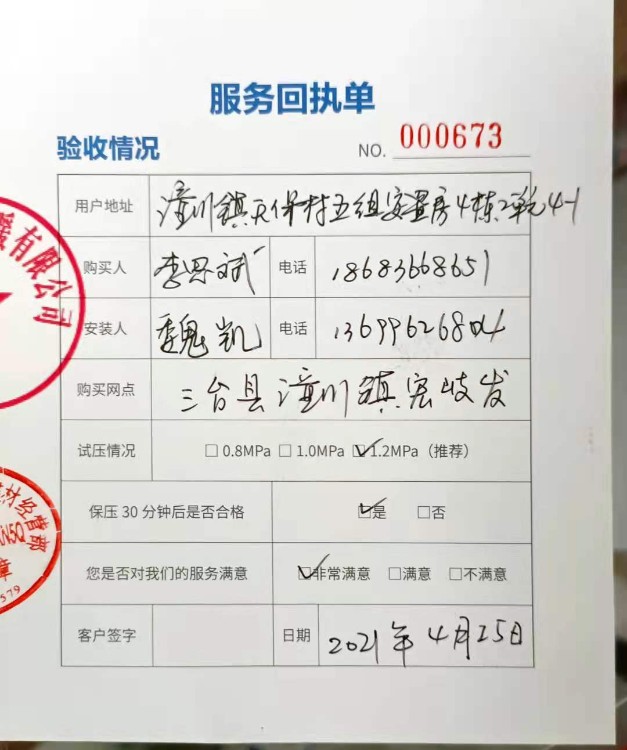 服务回执单
验收情况 NO. 000673
用户地址 潼川镇天保村五组安置房4栋2单元4-1
购买人 李思斌 电话 18683668651
安装人 魏凯 电话 13699626804
购买网点 三台县潼川镇宏岐发
试压情况 □ 0.8MPa □ 1.0MPa ☑ 1.2MPa（推荐）
保压 30 分钟后是否合格 ☑是 □否
您是否对我们的服务满意 ☑非常满意 □满意 □不满意
客户签字 日期 2021年4月25日
有限公司
材经营部
章
579